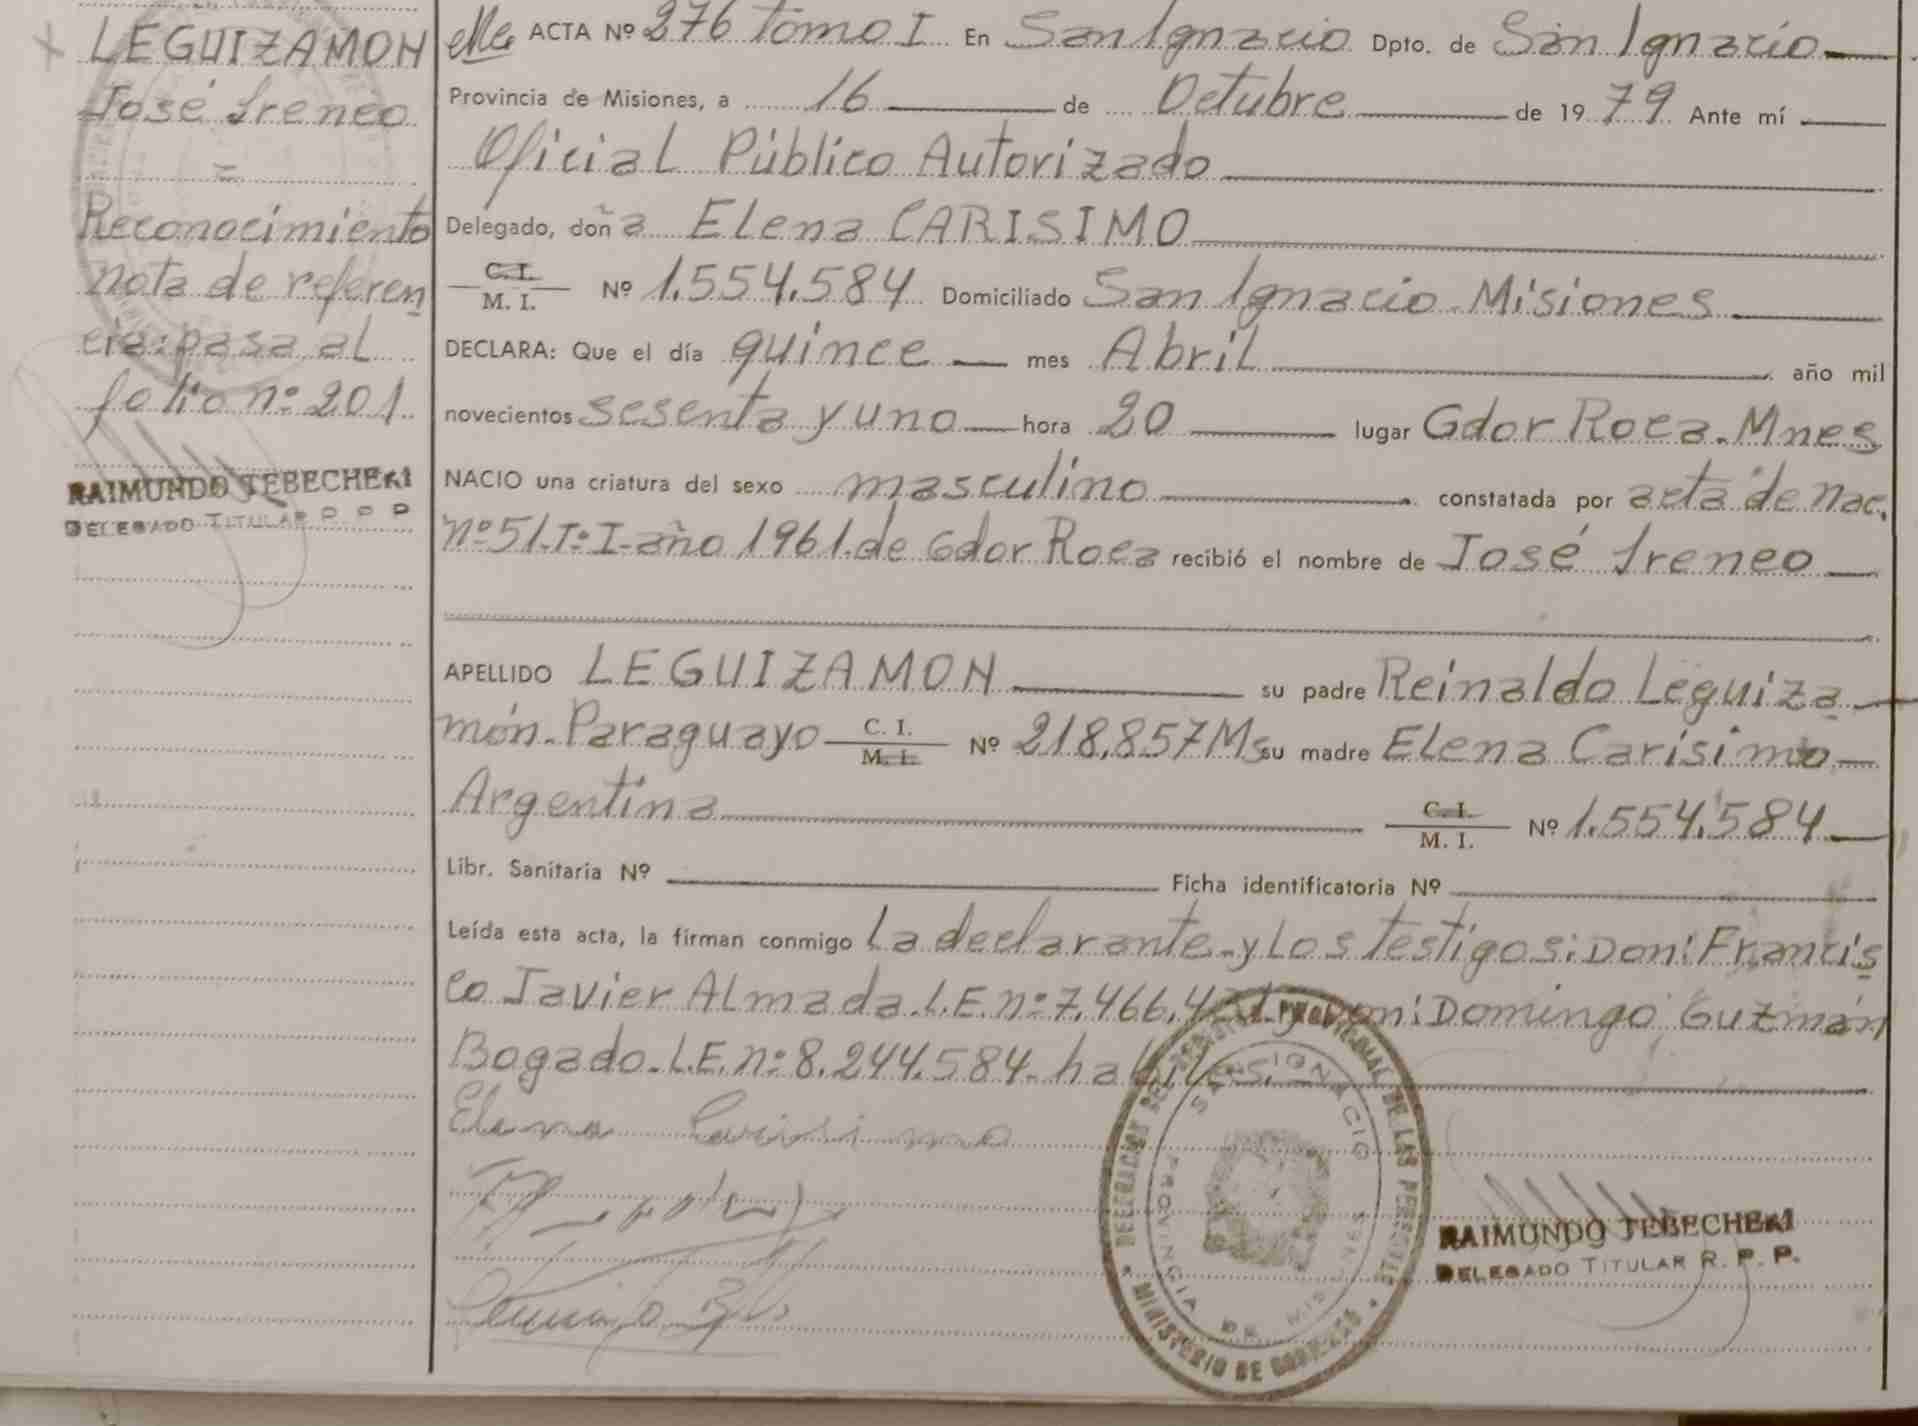 LEGUIZAMON
José Ireneo
=
Reconocimiento
nota de referen
cia: pasa al
folio nº 201.
RAIMUNDO TEBECHERI
DELEGADO TITULAR R P P
ACTA Nº 276 Tomo I En San Ignacio Dpto. de San Ignacio
Provincia de Misiones, a 16 de Octubre de 1979 Ante mí
Oficial Público Autorizado
Delegado, doña Elena CARISIMO
C.I.
M. I. Nº 1.554.584 Domiciliado San Ignacio. Misiones
DECLARA: Que el día quince mes Abril año mil
novecientos sesenta y uno hora 20 lugar Gdor Roca. Mnes
NACIO una criatura del sexo masculino constatada por acta de nac.
nº 51. Tº I. año 1961. de Gdor Roca recibió el nombre de José Ireneo
APELLIDO LEGUIZAMON su padre Reinaldo Leguiza
món. Paraguayo C. I. M. I. Nº 218.857 Ms su madre Elena Carisimo
Argentina C. I. M. I. Nº 1.554.584
Libr. Sanitaria Nº Ficha identificatoria Nº
Leída esta acta, la firman conmigo la declarante y los testigos: Don: Francis
co Javier Almada. L.E. nº 7.466. y Don: Domingo Guzmán
Bogado. L.E. nº 8.244.584. habiles.
Elena Carisimo
SAN IGNACIO
PROVINCIA DE MISIONES
MINISTERIO DE GOBIERNO
RAIMUNDO TEBECHERI
DELEGADO TITULAR R. P. P.